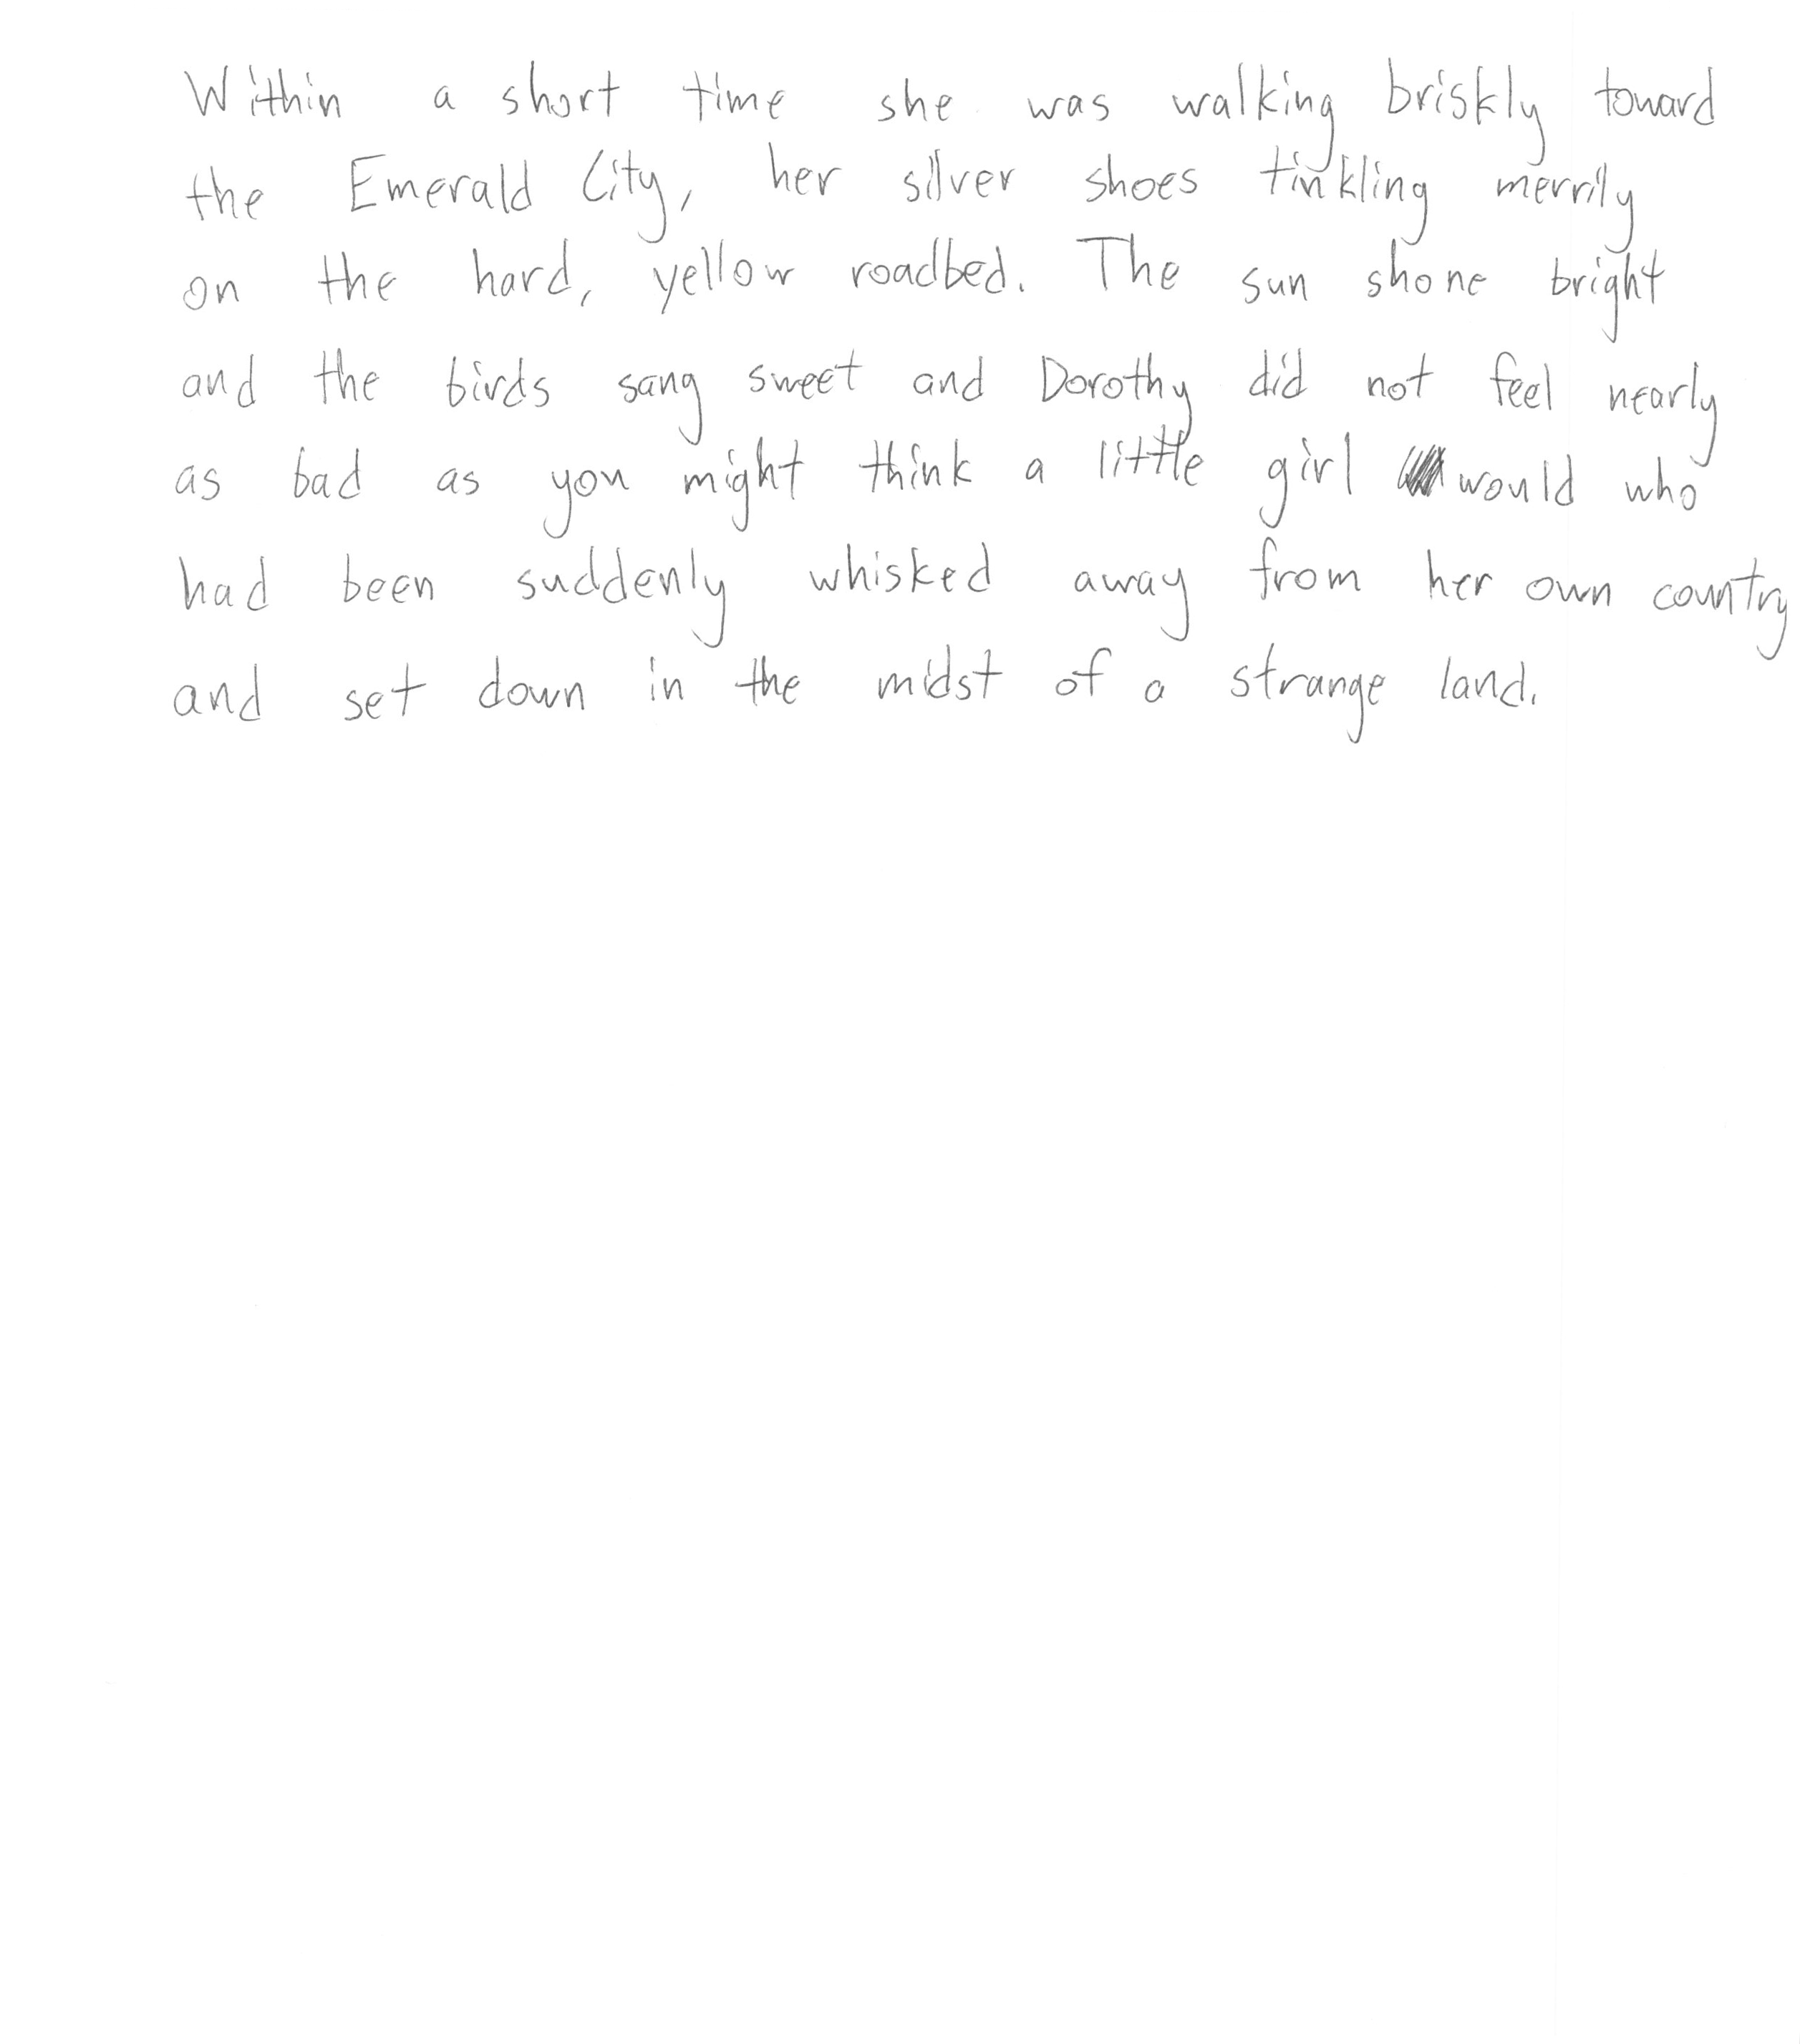 Within a short time she was walking briskly toward
the Emerald City, her silver shoes tinkling merrily
on the hard, yellow roadbed. The sun shone bright
and the birds sang sweet and Dorothy did not feel nearly
as bad as you might think a little girl would who
had been suddenly whisked away from her own country
and set down in the midst of a strange land.